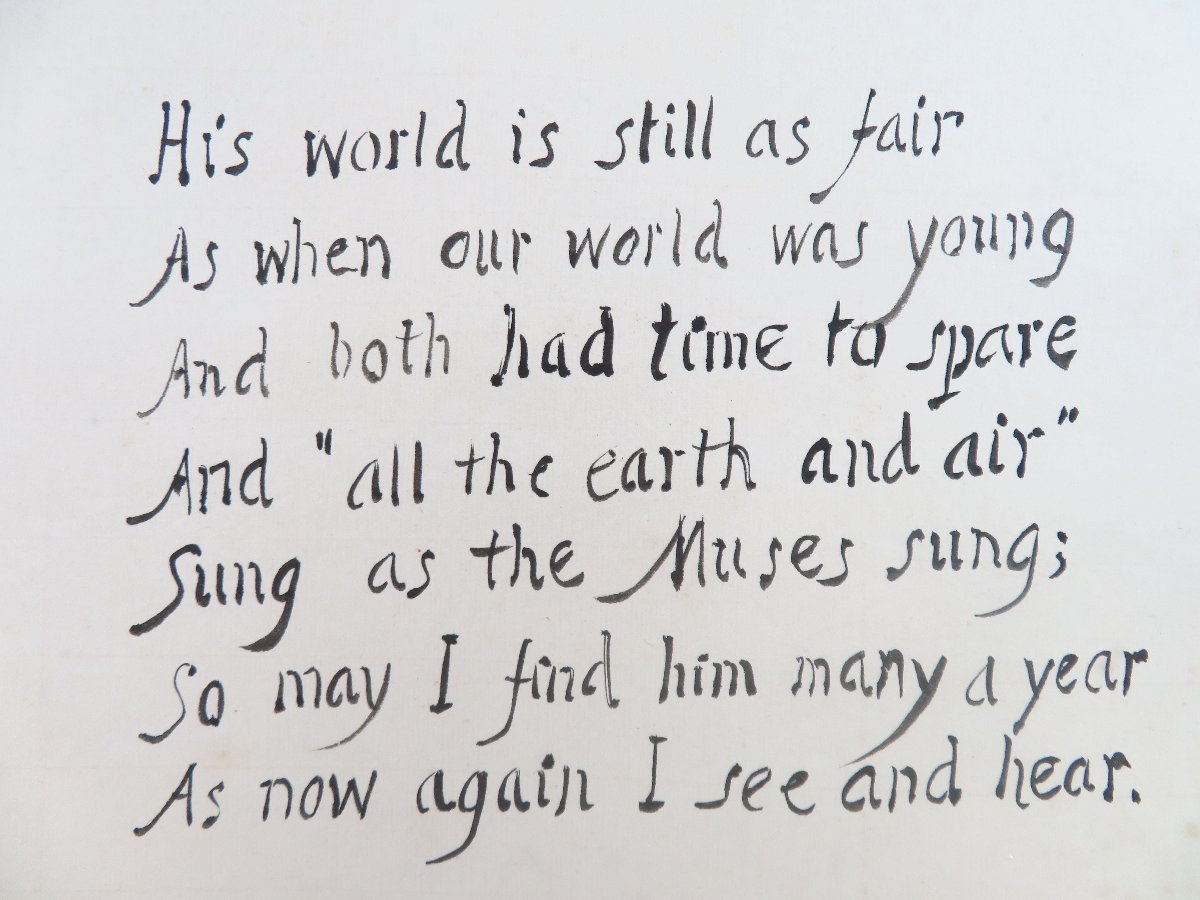 His world is still as fair
As when our world was young
And both had time to spare
And "all the earth and air"
Sung as the Muses sung;
So may I find him many a year
As now again I see and hear.